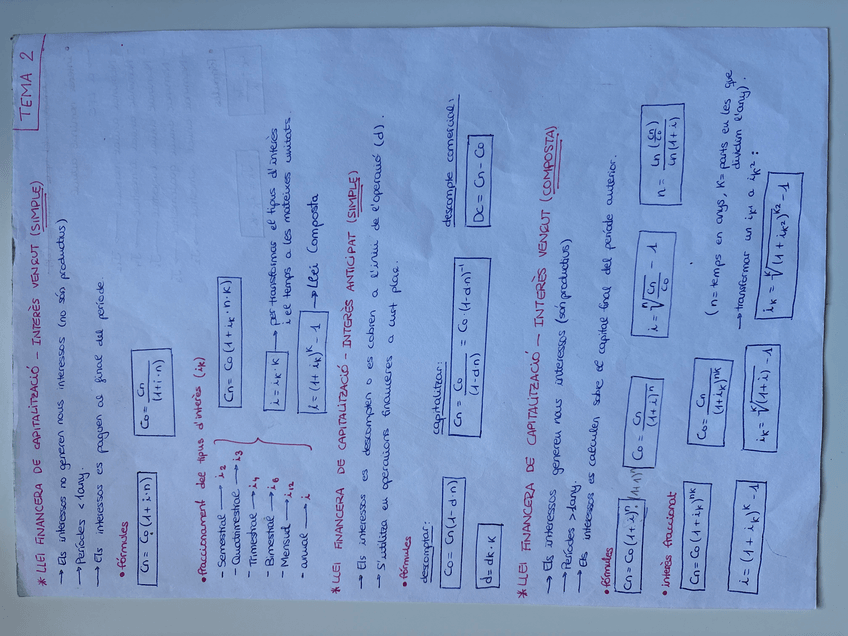 TEMA 2
* LLEI FINANCERA DE CAPITALITZACIÓ - INTERÈS VENÇUT (SIMPLE)
→ Els interessos no generen nous interessos (no són productius)
→ Períodes < 1 any.
→ Els interessos es paguen al final del període.
• fórmules
Cn = Co (1 + i·n)
Co = Cn / (1 + i·n)
• fraccionament del tipus d'interès (ik)
- Semestral → i2
- Quadrimestral → i3
- Trimestral → i4
- Bimestral → i6
- Mensual → i12
- anual → i
Cn = Co (1 + ik · n · k)
i = ik · k → per transformar el tipus d'interès
i el temps a les mateixes unitats.
i = (1 + ik)^k - 1 → Llei Composta
* LLEI FINANCERA DE CAPITALITZACIÓ - INTERÈS ANTICIPAT (SIMPLE)
→ Els interessos es descompten o es cobren a l'inici de l'operació (d).
→ S'utilitza en operacions financeres a curt plaç.
• fórmules
descomptar:
Co = Cn (1 - d·n)
d = dk · k
capitalitzar:
Cn = Co / (1 - d·n) = Co (1 - d·n)^-1
descompte comercial:
Dc = Cn - Co
* LLEI FINANCERA DE CAPITALITZACIÓ - INTERÈS VENÇUT (COMPOSTA)
→ Els interessos generen nous interessos (són productius)
→ Períodes > 1 any.
→ Els interessos es calculen sobre el capital final del període anterior.
• fórmules
Cn = Co (1 + i)^n
Co = Cn / (1 + i)^n
i = ⁿ√(Cn / Co) - 1
n = ln (Cn / Co) / ln (1 + i)
• interès fraccionat
Cn = Co (1 + ik)^nk
Co = Cn / (1 + ik)^nk
(n = temps en anys, k = parts en les que
dividim l'any).
i = (1 + ik)^k - 1
ik = ᵏ√(1 + i) - 1
→ transformar un ik1 a ik2 :
ik = ᵏ√(1 + ik2)^k2 - 1